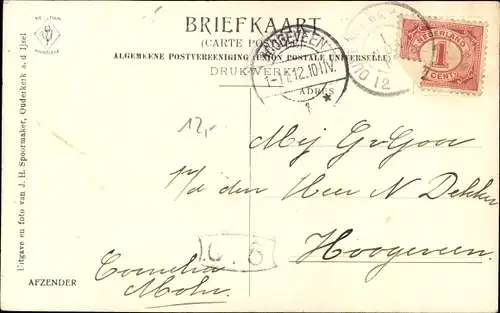 BRIEFKAART
(CARTE POSTALE)
ALGEMEENE POSTVEREENIGING (UNION POSTALE UNIVERSELLE)
DRUKWERK
ADRES
HOOGEVEEN
12.10
1
NEDERLAND
1
CENT
12,-
Mej G v Goor
p/a den Heer N Dekker
Hoogeveen
Cornelia
Mohr.
AFZENDER
Uitgave en foto van J. H. Spoormaker, Ouderkerk a. d. IJsel